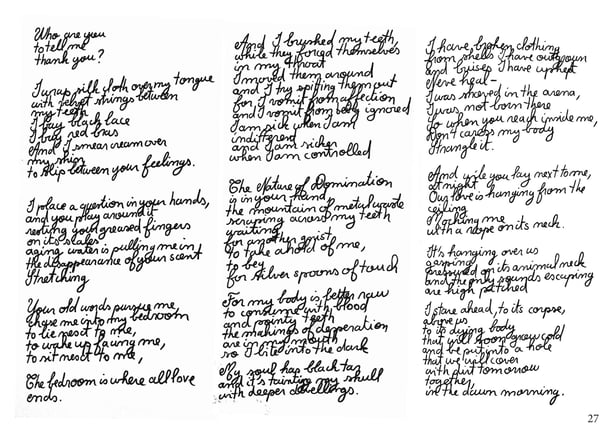 Who are you
to tell me
thank you?
I wrap silk cloth over my tongue
with velvet strings between
my teeth
I buy black lace
I buy red bras
And I smear cream over
my skin
to slip between your feelings.
I place a question in your hands,
and you play around it
resting your greased fingers
on its scales
aging water is pulling me in
the disappearance of your scent
Stretching
Your old words pursue me,
chase me into my bedroom
to lie next to me,
to wake up facing me,
to sit next to me,
The bedroom is where all love
ends.
And I brushed my teeth
while they forced themselves
in my throat
I moved them around
and I try spitting them out
for I vomit from affection
and I vomit from being ignored
I am sick when I am
indifferent
and I am sicker
when I am controlled
The Nature of Domination
is in your hand
the mountain of metal waste
scraping across my teeth
waiting
for another
to take ahold of me,
to beg
for silver spoons of touch
For my body is better raw
to consume with blood
and pointy teeth
the makings of desperation
are in my mouth
so I bite into the dark
My soul has black tar
and it's tainting my skull
with deeper dwellings.
I have broken clothing
from shells I have outgrown
and bruises I have upkept
Never heal-
I was starved in the arena,
I was not born there
So when you reach inside me,
Don't caress my body
Strangle it.
And while you lay next to me,
at night
Our love is hanging from the
ceiling
Mocking me
with a rope on its neck.
It's hanging over us
gasping
pressured on its animal neck
and the only sounds escaping
are high pitched
I stare ahead, to its corpse,
above us
to its dying body
that will soon grow cold
and be put into a hole
that we will cover
with dirt tomorrow
together,
in the dawn morning.
27